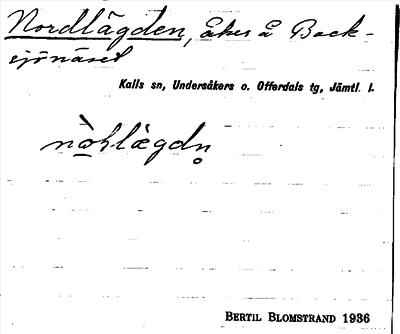 Nordlägden, åker å Back-
sjönäset
Kalls sn, Undersåkers o. Offerdals tg, Jämtl. l.
nɷ̀hlæ̀gdn̥
BERTIL BLOMSTRAND 1936